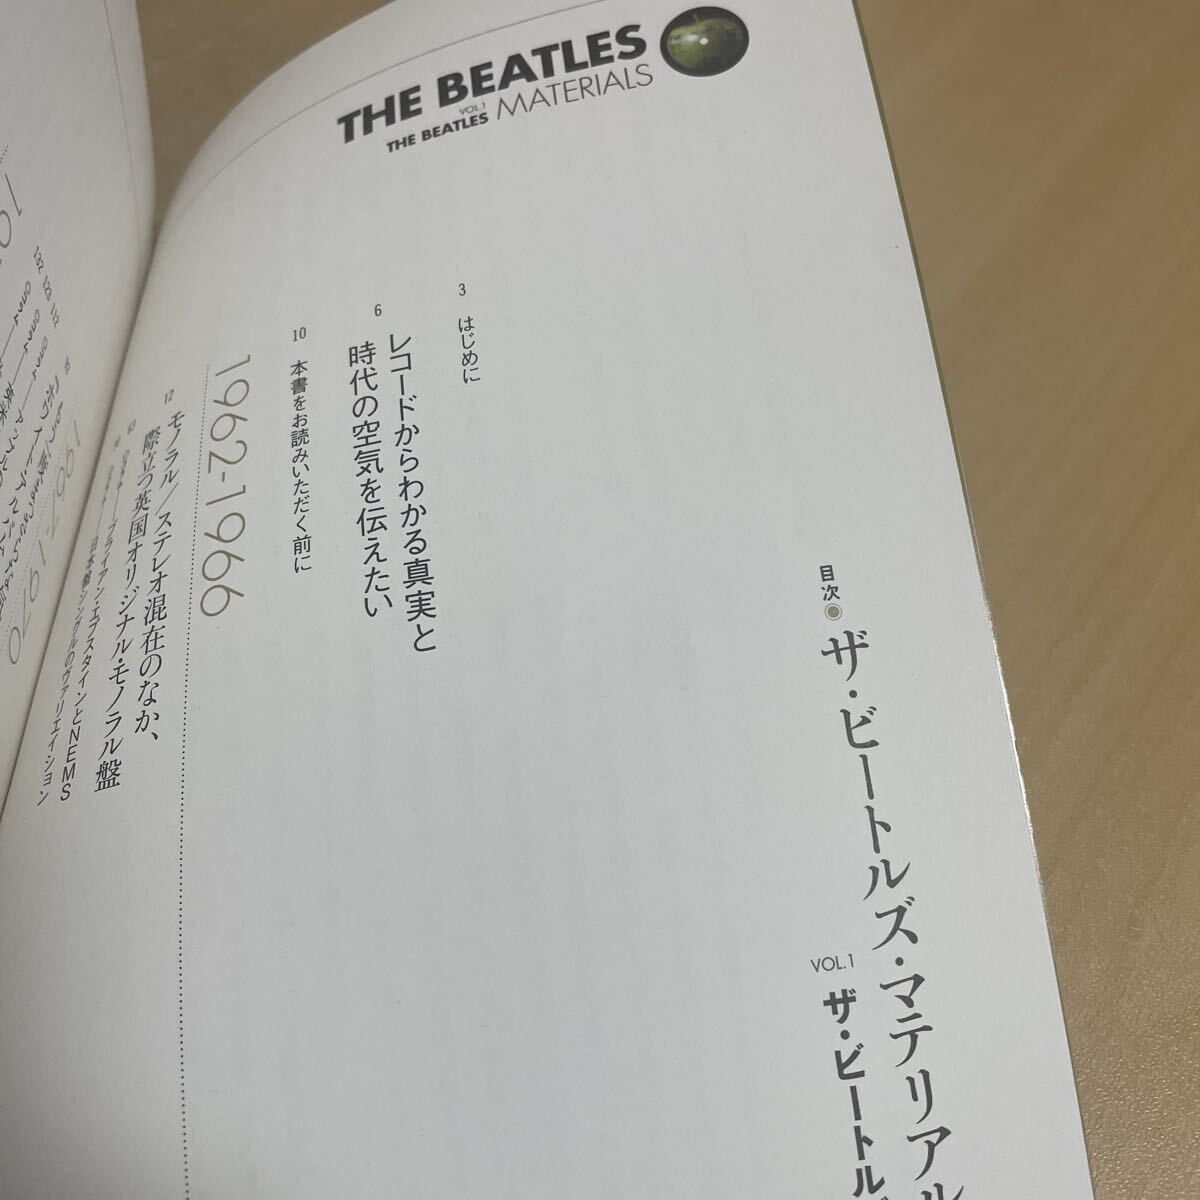 THE BEATLES
MATERIALS
VOL.1
THE BEATLES
目次
ザ・ビートルズ・マテリアル
VOL.1
ザ・ビートル
3 はじめに
6 レコードからわかる真実と
時代の空気を伝えたい
10 本書をお読みいただく前に
1962-1966
12 モノラル／ステレオ混在のなか、
際立つ英国オリジナル・モノラル盤
ブライアン・エプスタインとNEMS
日本盤シングルのヴァリエイション
1967-1970